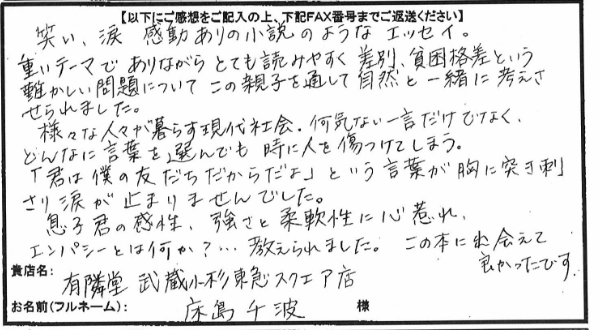 【以下にご感想をご記入の上、下記FAX番号までご返送ください】
笑い、涙 感動ありの小説のようなエッセイ。
重いテーマでありながら とても読みやすく 差別、貧困格差という
難かしい問題について この親子を通して自然と一緒に考えさ
せられました。
様々な人々が暮らす現代社会、何気ない一言だけでなく、
どんなに言葉を選んでも 時に人を傷つけてしまう。
「君は僕の友だちだからだよ」という言葉が胸に突き刺
さり涙が止まりませんでした。
息子君の感性、強さと柔軟性に心惹れ、
エンパシーとは何か?… 教えられました。この本に出会えて
良かったです
貴店名: 有隣堂 武蔵小杉東急スクエア店
お名前(フルネーム): 床島千波 様